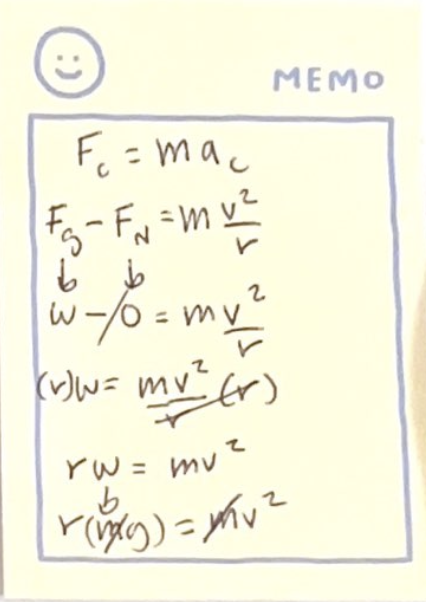 MEMO
F_c = ma_c
F_g - F_N = m v²/r
w - 0 = m v²/r
(r)w = mv²/r (r)
rw = mv²
r(mg) = mv²